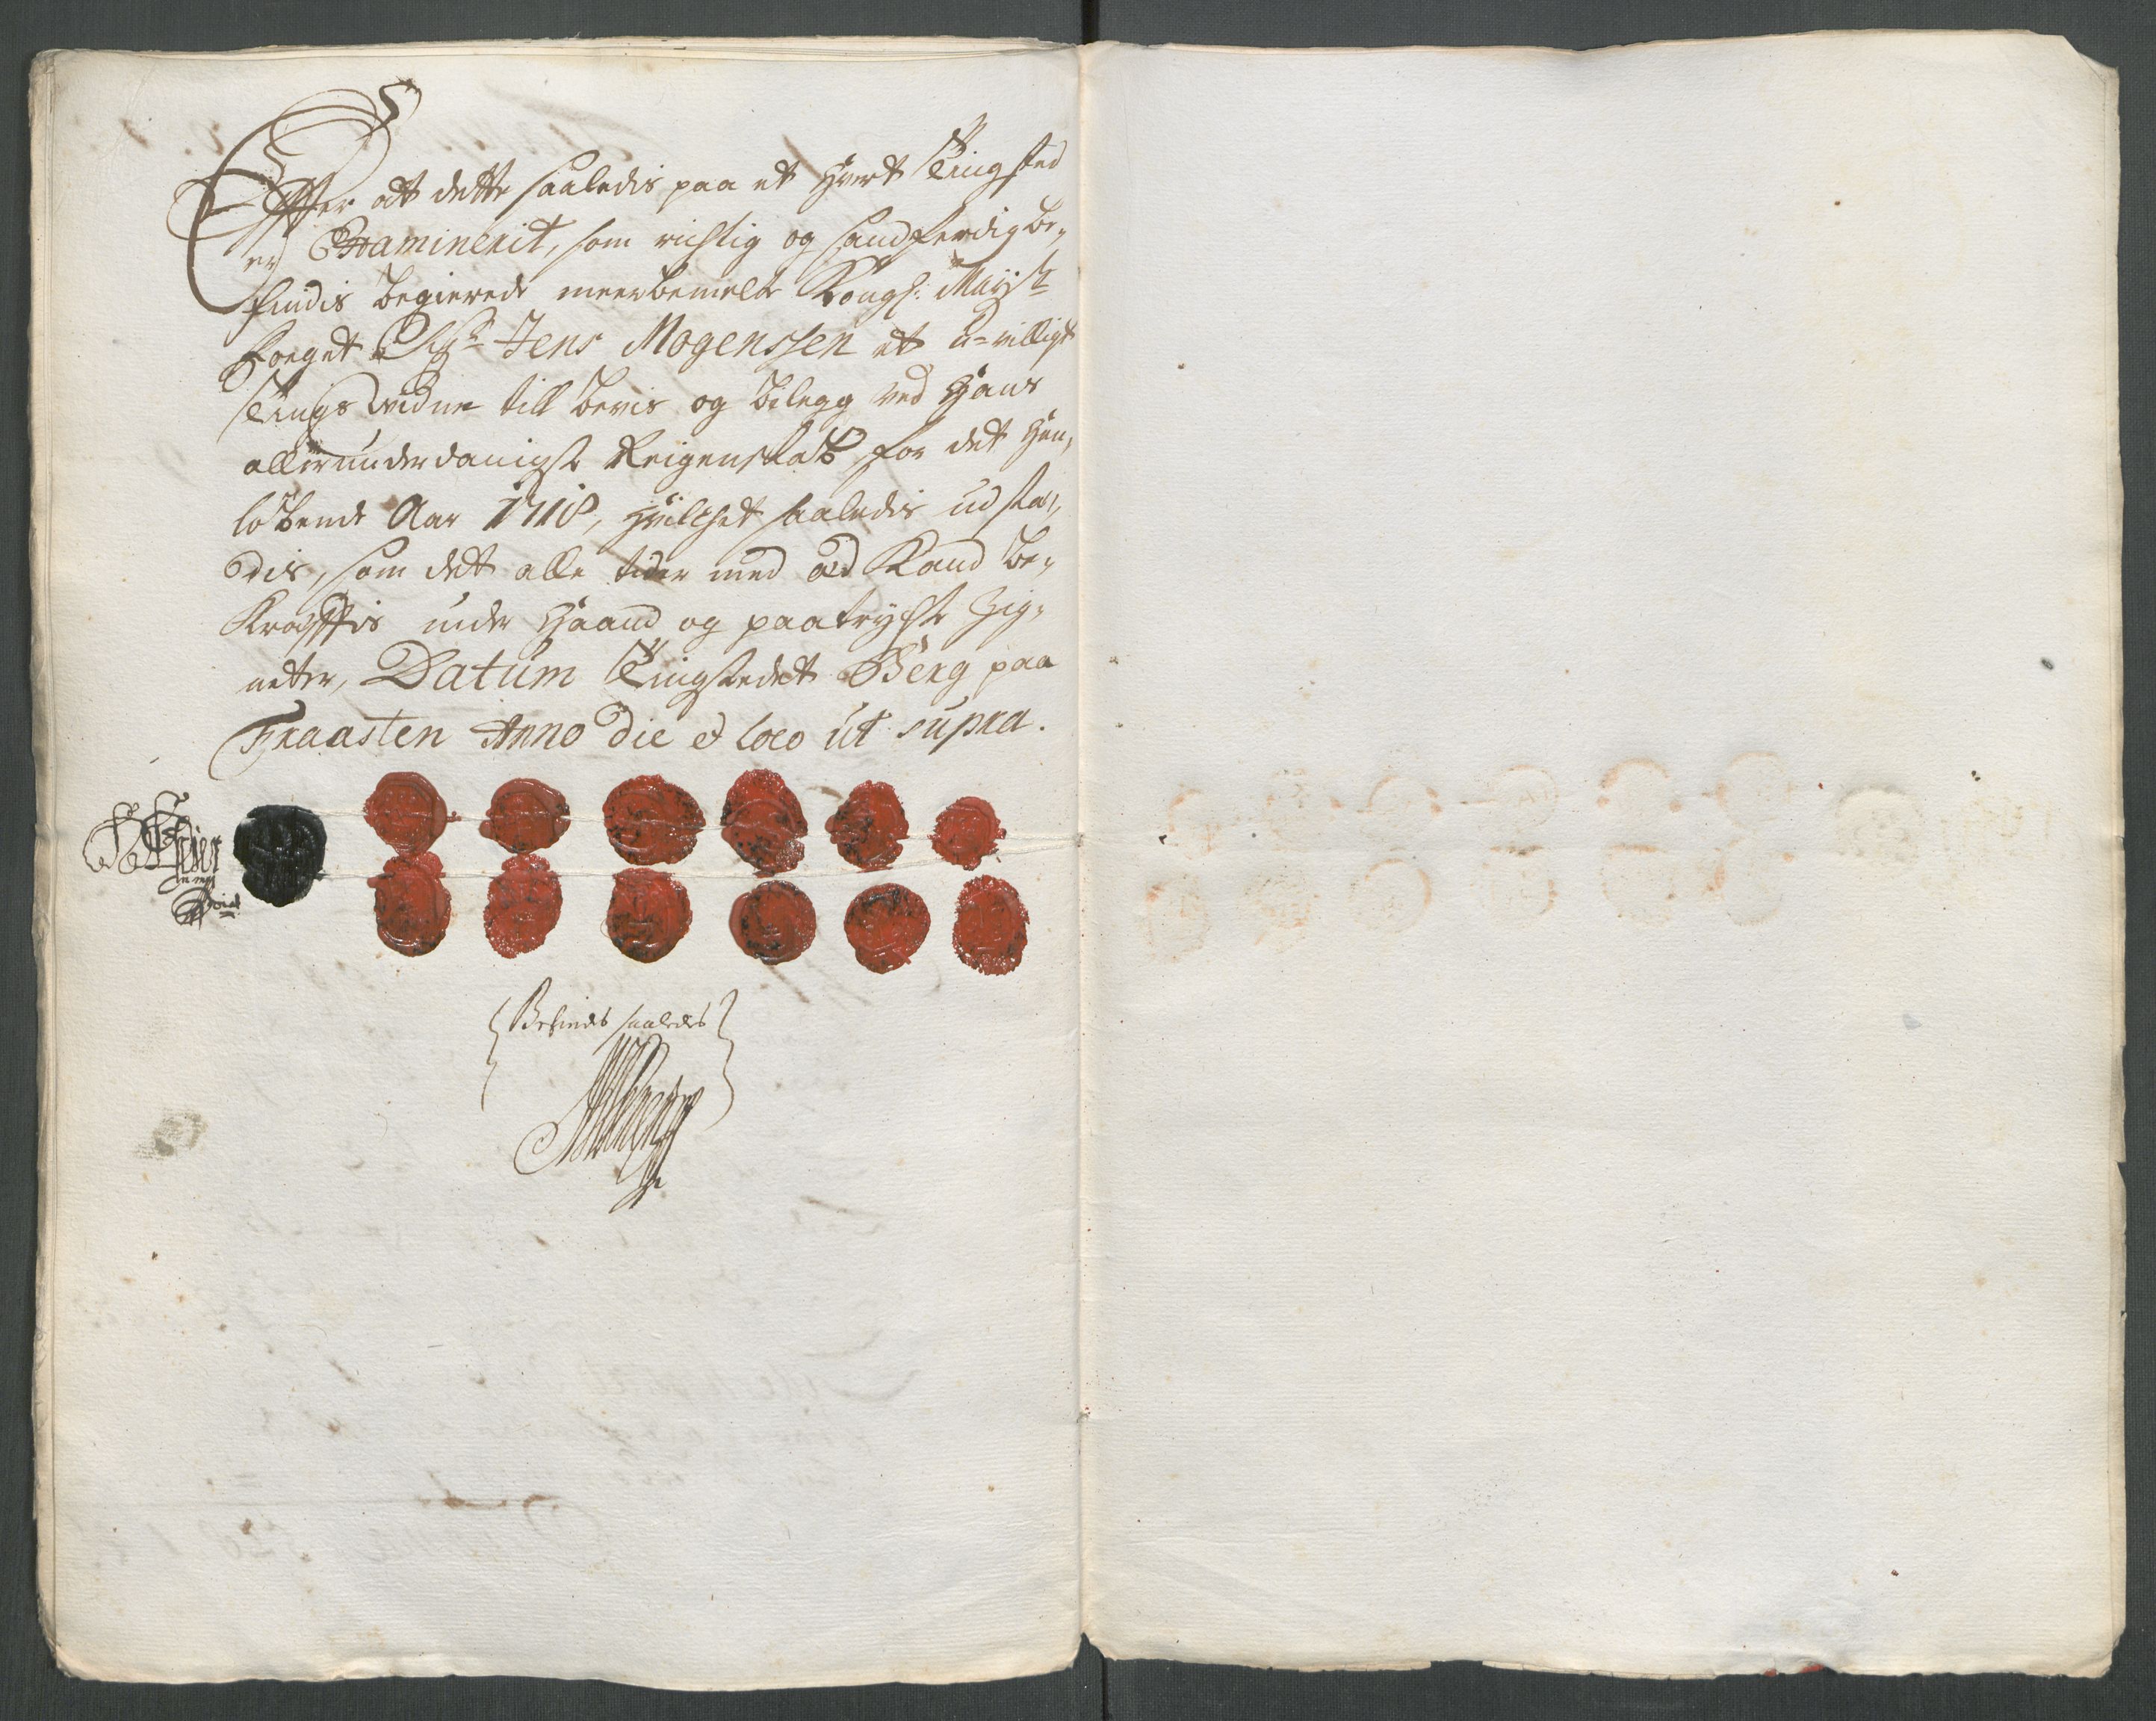 Effter at dette saaledis paa et hvert Tingsted
er Examinerit, som richtig og sandferdig be,,
findis begierede meerbemelte Kongl: Mayst
Foeget Sgr Jens Mogenssen et u=villigt
Tings vidne till bevis og bilegg ved hans
allerunderdanigste Reigenskab for det hen,,
løbende Aar 1718, hvilchet saaledis udsta,,
dis, som det alle tider med æd Kand be,,
Kræfftis under haand og paatrychte Zig,,
neter, Datum Tingstedet Berg paa
Fraasten Anno die et loco ut supra.
Befindes saaledes